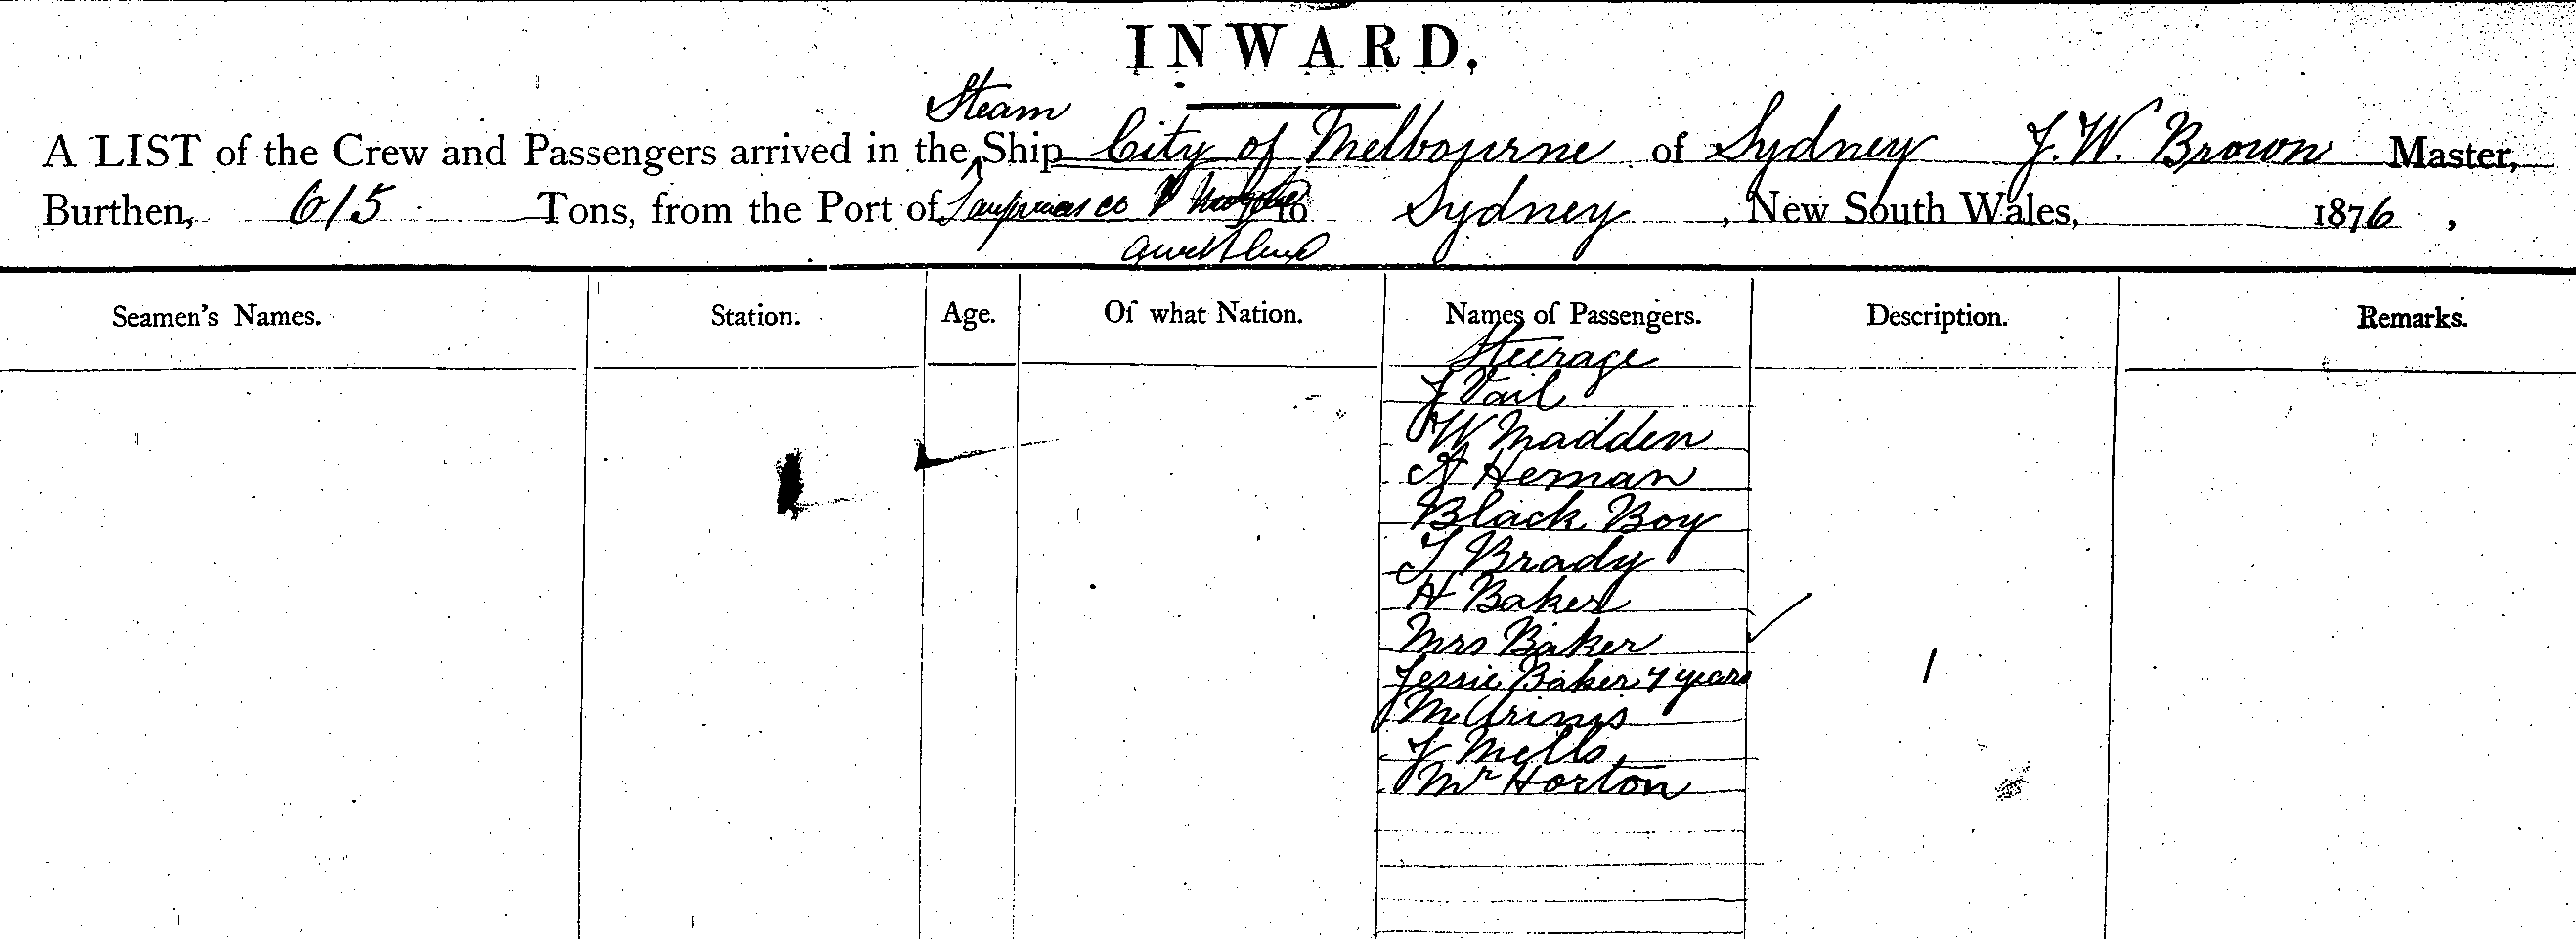 INWARD.
Steam
A LIST of the Crew and Passengers arrived in the Ship City of Melbourne of Sydney J. W. Brown Master,
Burthen, 615 Tons, from the Port of to Sydney, New South Wales, 1876,
Seamen's Names. Station. Age. Of what Nation. Names of Passengers. Description. Remarks.
Steerage
J Vail
W Madden
A Heman
Black Boy
T Brady
H Baker
Mrs Baker
Jessie Baker 7 years
J Mells
Mr Horton